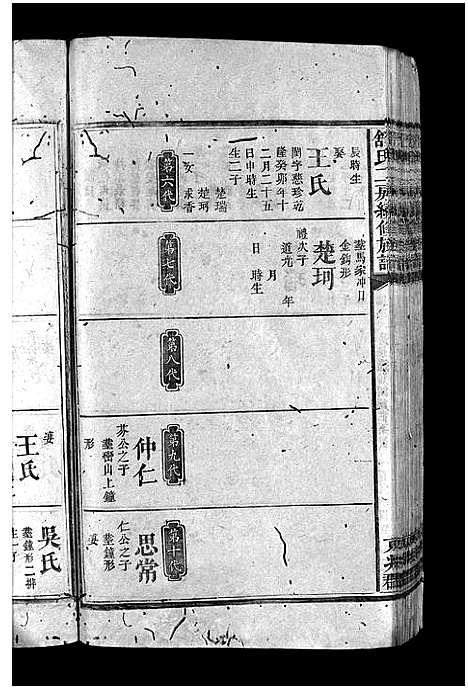 舒氏二房續修族譜
東井郡
辰時生
娶
王氏
閨字慈珍乾
隆癸卯年十
二月二十五
日申時生
生二子
楚瑞
楚珂
一女 求香
第六代
葬馬家冲丁
金鈎形
楚珂
禮次子
道光 年
月
日 時生
第七代
第八代
仲仁
芬公之子
葬窑山上鐘
形
第九代
思常
仁公之子
葬鐘形
娶
第十代
娶
王氏
吳氏
葬鐘形二排